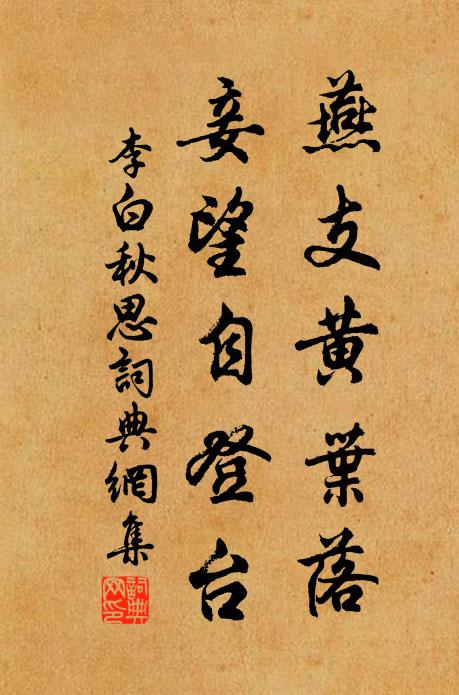 燕支黄葉落
妾望自登台
李白秋思詞典網集
詞典网印